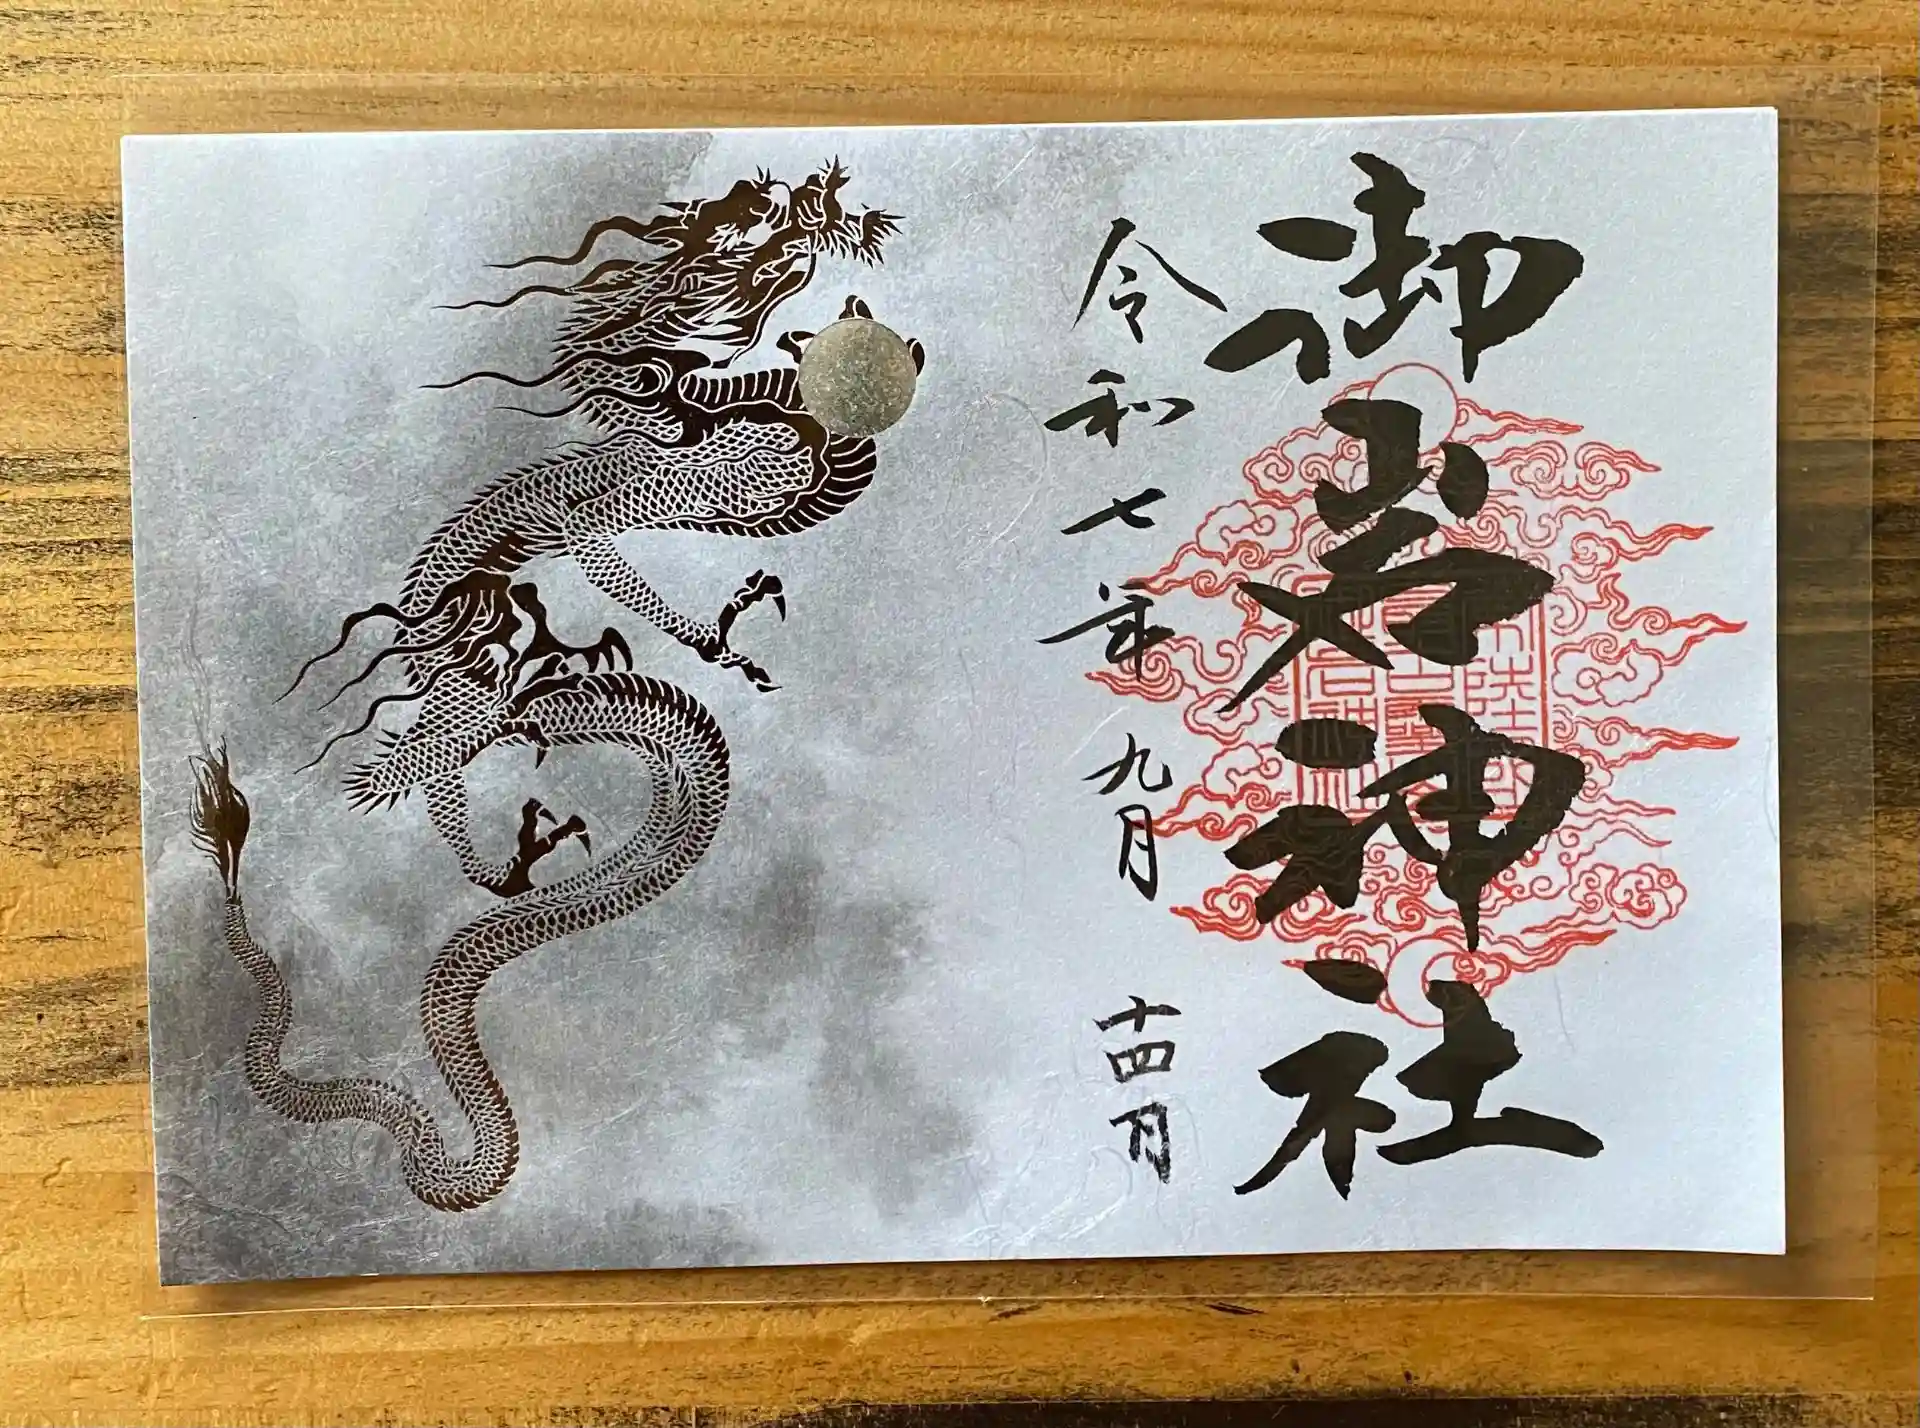 御岩神社
令和七年九月十四日